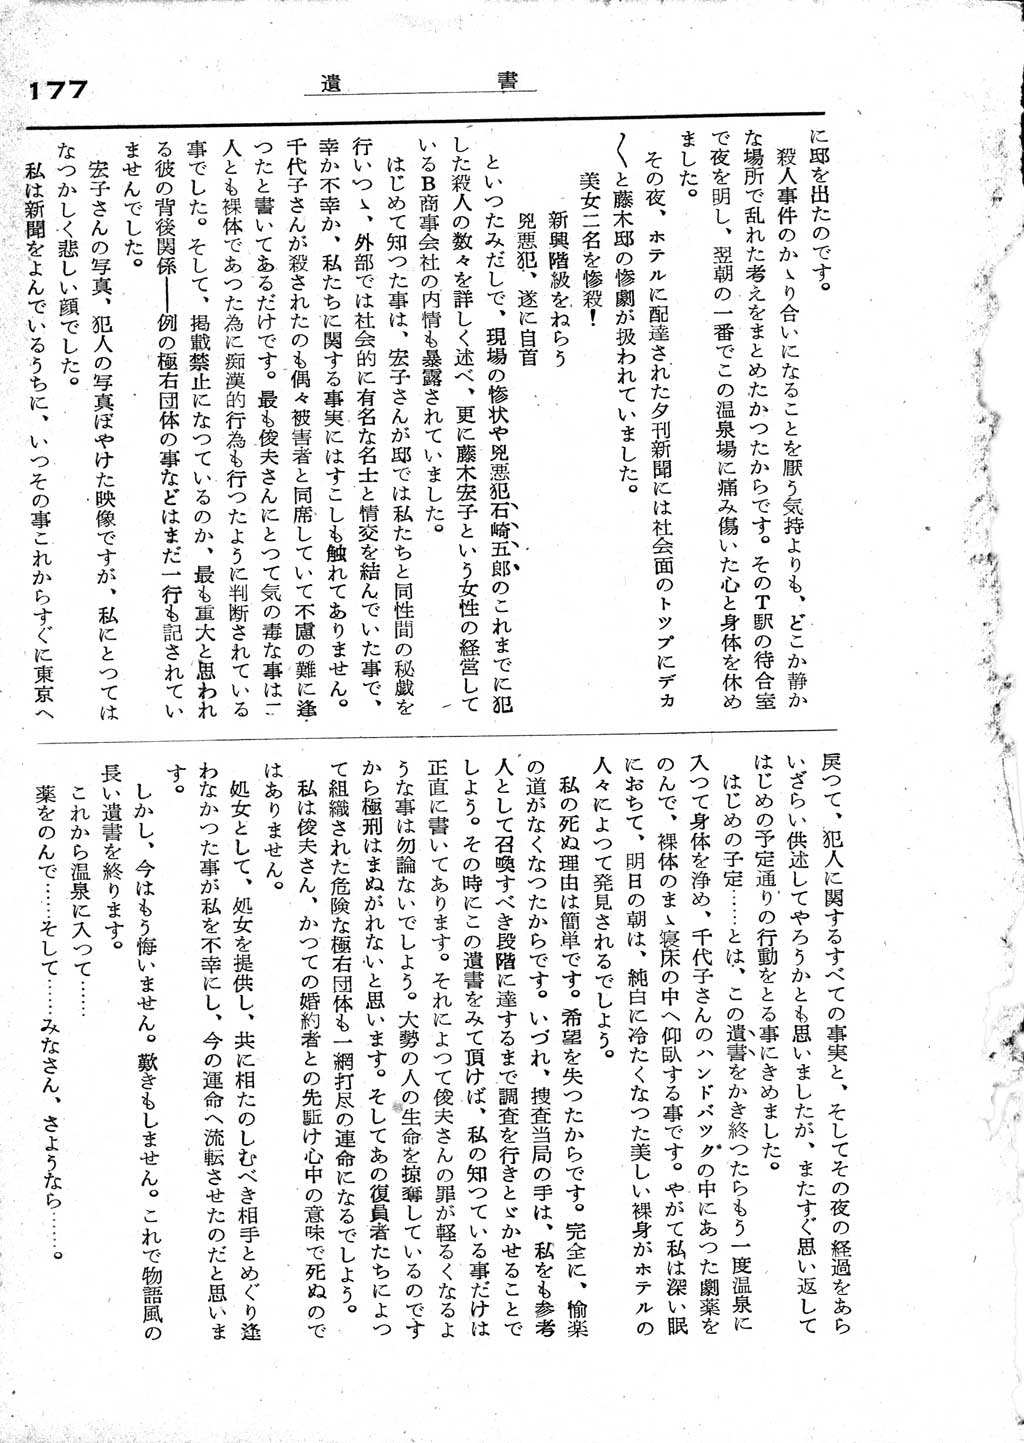 177
遺書
に邸を出たのです。
殺人事件のかゝり合いになることを厭う気持よりも、どこか静か
な場所で乱れた考えをまとめたかつたからです。そのT駅の待合室
で夜を明し、翌朝の一番でこの温泉場に痛み傷いた心と身体を休め
ました。
その夜、ホテルに配達された夕刊新聞には社会面のトップにデカ
〱と藤木邸の惨劇が扱われていました。
美女二名を惨殺！
新興階級をねらう
兇悪犯、遂に自首
といつたみだしで、現場の惨状や兇悪犯石崎五郎のこれまでに犯
した殺人の数々を詳しく述べ、更に藤木宏子という女性の経営して
いるB商事会社の内情も暴露されていました。
はじめて知つた事は、宏子さんが邸では私たちと同性間の秘戯を
行いつゝ、外部では社会的に有名な名士と情交を結んでいた事で、
幸か不幸か、私たちに関する事実にはすこしも触れてありません。
千代子さんが殺されたのも偶々被害者と同席していて不慮の難に逢
つたと書いてあるだけです。最も俊夫さんにとつて気の毒な事は二
人とも裸体であつた為に痴漢的行為も行つたように判断されている
事でした。そして、掲載禁止になつているのか、最も重大と思われ
る彼の背後関係——例の極右団体の事などはまだ一行も記されてい
ませんでした。
宏子さんの写真、犯人の写真ぼやけた映像ですが、私にとつては
なつかしく悲しい顔でした。
私は新聞をよんでいるうちに、いつその事これからすぐに東京へ
戻つて、犯人に関するすべての事実と、そしてその夜の経過をあら
いざらい供述してやろうかとも思いましたが、またすぐ思い返して
はじめの予定通りの行動をとる事にきめました。
はじめの予定……とは、この遺書をかき終つたらもう一度温泉に
入つて身体を浄め、千代子さんのハンドバッグの中にあつた劇薬を
のんで、裸体のまゝ寝床の中へ仰臥する事です。やがて私は深い眠
におちて、明日の朝は、純白に冷たくなつた美しい裸身がホテルの
人々によつて発見されるでしよう。
私の死ぬ理由は簡単です。希望を失つたからです。完全に、愉楽
の道がなくなつたからです。いづれ、捜査当局の手は、私をも参考
人として召喚すべき段階に達するまで調査を行きとゞかせることで
しよう。その時にこの遺書をみて頂けば、私の知つている事だけは
正直に書いてあります。それによつて俊夫さんの罪が軽るくなるよ
うな事は勿論ないでしよう。大勢の人の生命を掠奪しているのです
から極刑はまぬがれないと思います。そしてあの復員者たちによつ
て組織された危険な極右団体も一網打尽の運命になるでしよう。
私は俊夫さん、かつての婚約者との先駈け心中の意味で死ぬので
はありません。
処女として、処女を提供し、共に相たのしむべき相手とめぐり逢
わなかつた事が私を不幸にし、今の運命へ流転させたのだと思いま
す。
しかし、今はもう悔いません。歎きもしません。これで物語風の
長い遺書を終ります。
これから温泉に入つて……
薬をのんで……そして……みなさん、さようなら……。